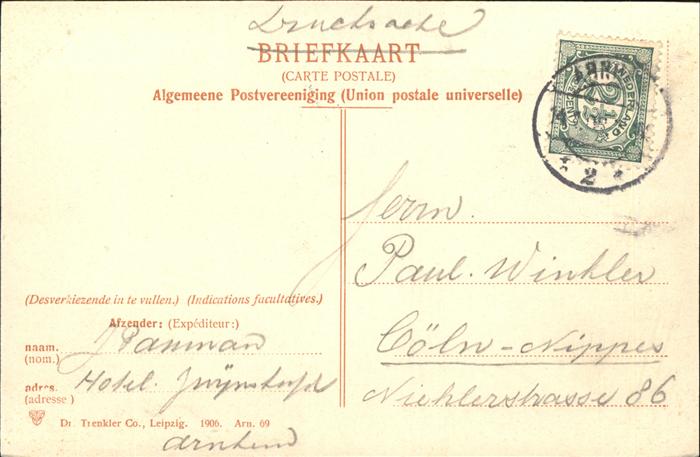 Drucksache
BRIEFKAART
(CARTE POSTALE)
Algemeene Postvereeniging (Union postale universelle)
NEDERLAND
2½
CENT
ARNHEM
2
Herrn
Paul. Winkler
Cöln-Nippes
Niehlerstrasse 86
(Desverkiezende in te vullen.) (Indications facultatives.)
Afzender: (Expéditeur:)
naam.
(nom.)
adres. Hotel.
(adresse)
Dr. Trenkler Co., Leipzig. 1906. Arn. 69
Arnhem